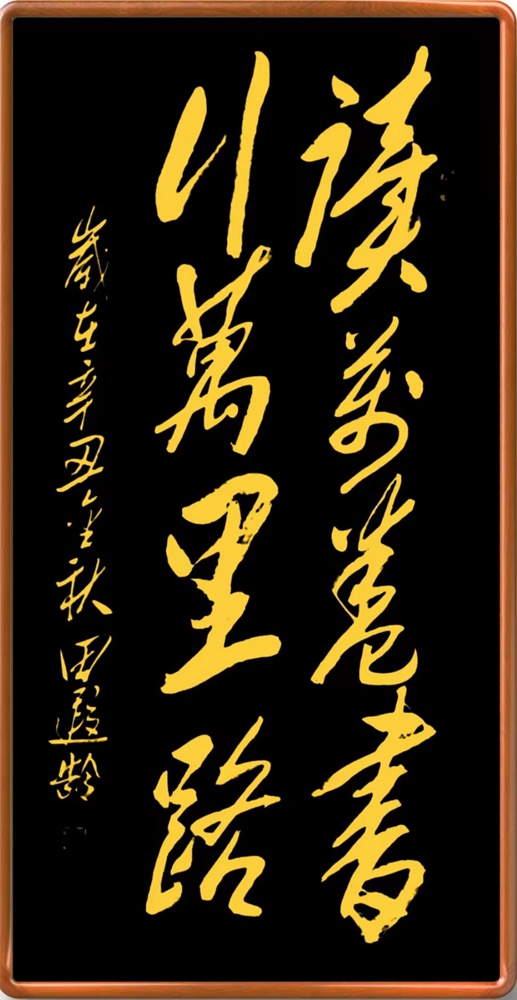 讀萬卷書
行萬里路
歲在辛丑金秋田遐齡